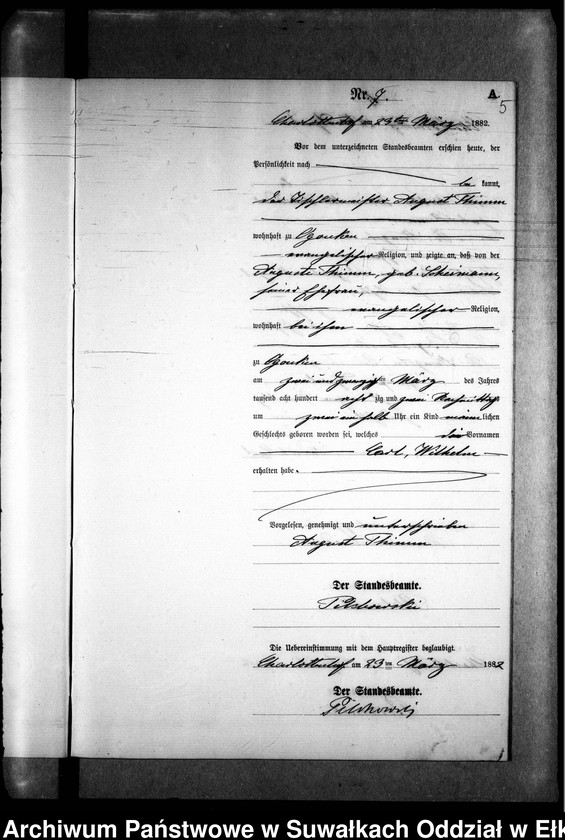 Nr. 7.
A
5
Charlottenhof am 23ten März 1882.
Vor dem unterzeichneten Standesbeamten erschien heute, der
Persönlichkeit nach
be kannt,
der Tischlermeister August Thimm
wohnhaft zu Czonken
evangelischer Religion, und zeigte an, daß von der
Auguste Thimm, geb. Scheimann,
seiner Ehefrau,
evangelischer Religion,
wohnhaft bei ihm
zu Czonken
am zwei und zwanzigsten März des Jahres
tausend acht hundert acht zig und zwei Nachmittags
um zwei ein halb Uhr ein Kind männlichen
Geschlechts geboren worden sei, welches die Vornamen
Carl, Wilhelm
erhalten habe.
Vorgelesen, genehmigt und unterschrieben
August Thimm
Der Standesbeamte.
Die Uebereinstimmung mit dem Hauptregister beglaubigt.
Charlottenhof am 23ten März 1882
Der Standesbeamte.
Archiwum Państwowe w Suwałkach Oddział w Ełk